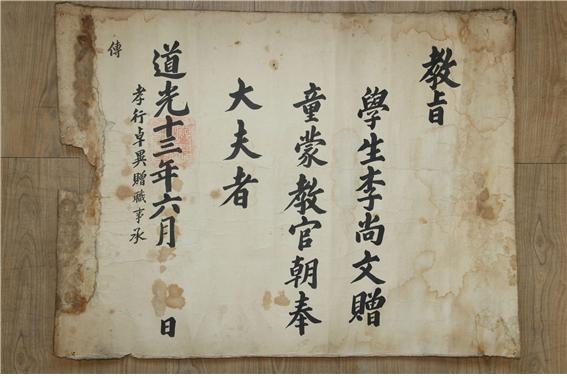 教旨
學生李尚文贈
童蒙教官朝奉
大夫者
道光十三年六月 日
孝行卓異贈職事承
傳